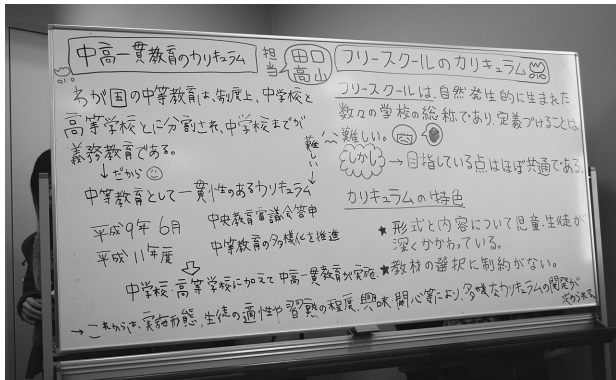 中高一貫教育のカリキュラム
担当
田口
高山
わが国の中等教育は、制度上、中学校と
高等学校とに分割され、中学校までが
義務教育である。
↓だから
難しい
中等教育として一貫性のあるカリキュラム
平成9年6月 中央教育審議会答申
平成11年度 中等教育の多様化を推進
中学校・高等学校に加えて中高一貫教育が実施
→これからは、実施形態、生徒の適性や習熟の程度、興味・関心等により、多様なカリキュラムの開発が
求められる。
フリースクールのカリキュラム
フリースクールは、自然発生的に生まれた
数々の学校の総称であり、定義づけることは
難しい。
しかし
→目指している点はほぼ共通である。
カリキュラムの特色
★形式と内容について児童・生徒が
深くかかわっている。
★教材の選択に制約がない。